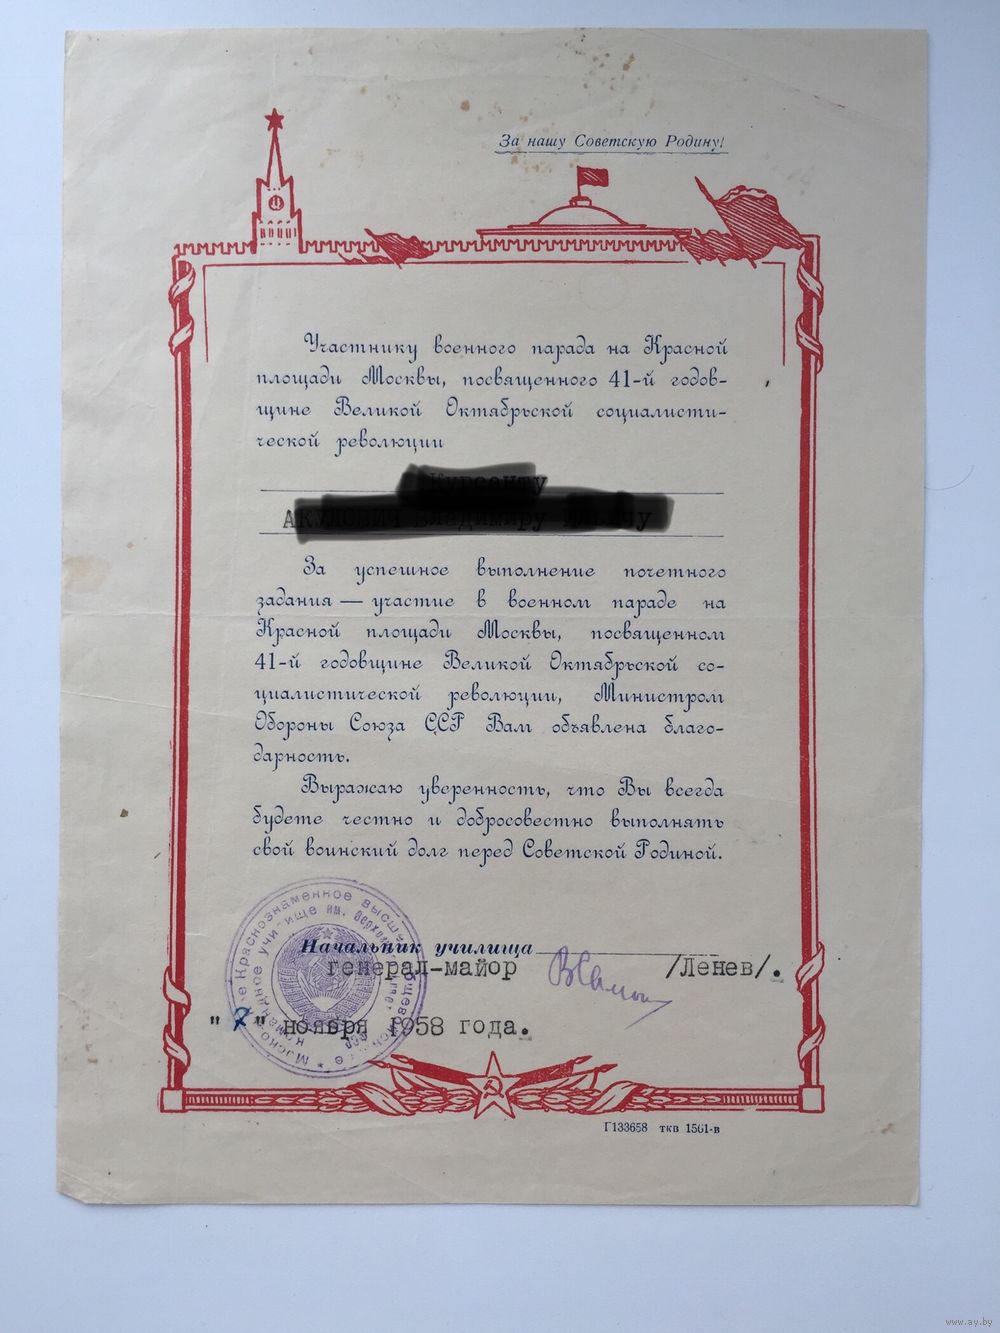 За нашу Советскую Родину!
Участнику военного парада на Красной
площади Москвы, посвященного 41-й годов-
щине Великой Октябрьской социалисти-
ческой революции
Курсанту
АКУЛОВИЧ Владимиру
За успешное выполнение почетного
задания — участие в военном параде на
Красной площади Москвы, посвященном
41-й годовщине Великой Октябрьской со-
циалистической революции, Министром
Обороны Союза ССР Вам объявлена благо-
дарность.
Выражаю уверенность, что Вы всегда
будете честно и добросовестно выполнять
свой воинский долг перед Советской Родиной.
Начальник училища
генерал-майор /Ленев/.
"7" ноября 1958 года.
Краснознаменное высш
командное учи ище им. Верхов
Г133658 ткв 1561-в
www.ay.by